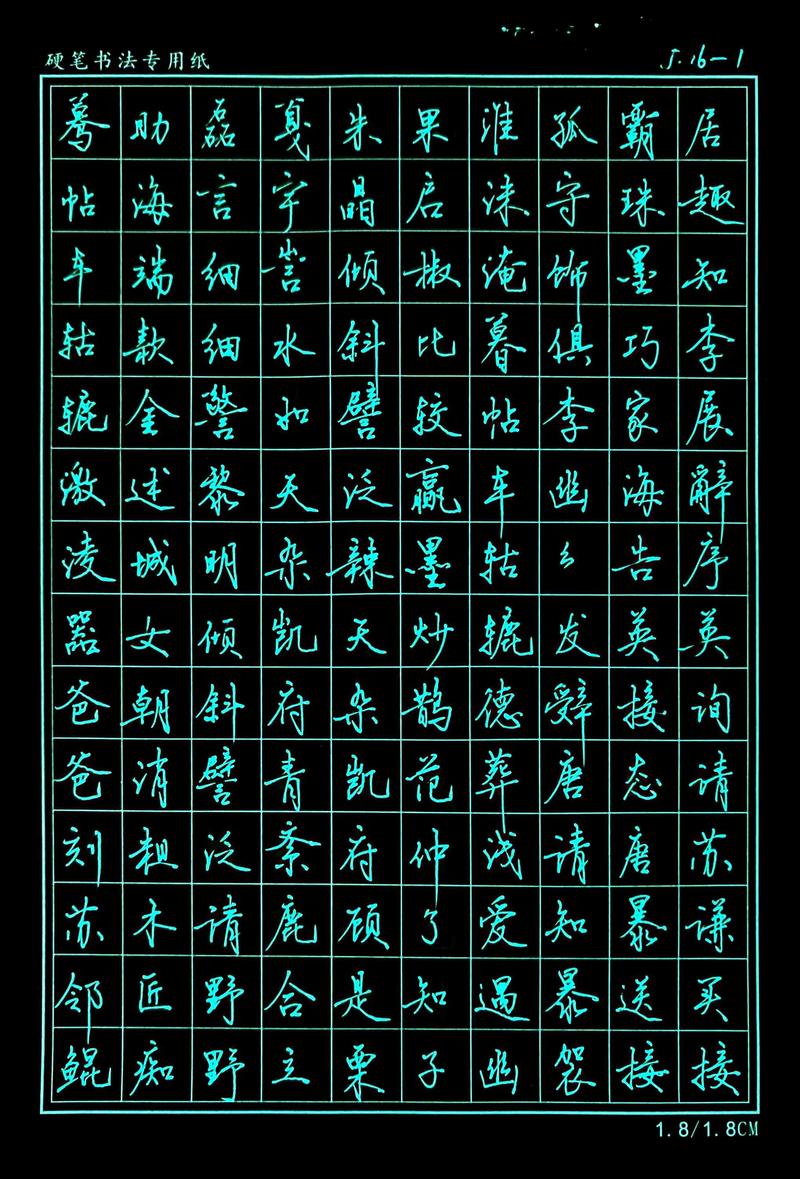 硬笔书法专用纸
5.16-1
骞助磊戛朱果淮孤霸居
帖海言宇晶启洙守珠趣
车端细訾倾椒淹饰墨知
轱款细水斜比暮俱巧李
辘金警如譬较帖李家展
激述黎天泛赢车幽海辞
凌城明杂辣墨轱乡告序
器女倾凯天炒辘发英英
爸朝斜府杂鹊德辤接询
爸消譬青凯范葬唐态请
刻粗泛紊府仲浅请唐苏
苏木请鹿顾了爱知暴谦
邻匠野合是知遇暴送买
鲲痴野立栗子幽袈接接
1.8/1.8CM